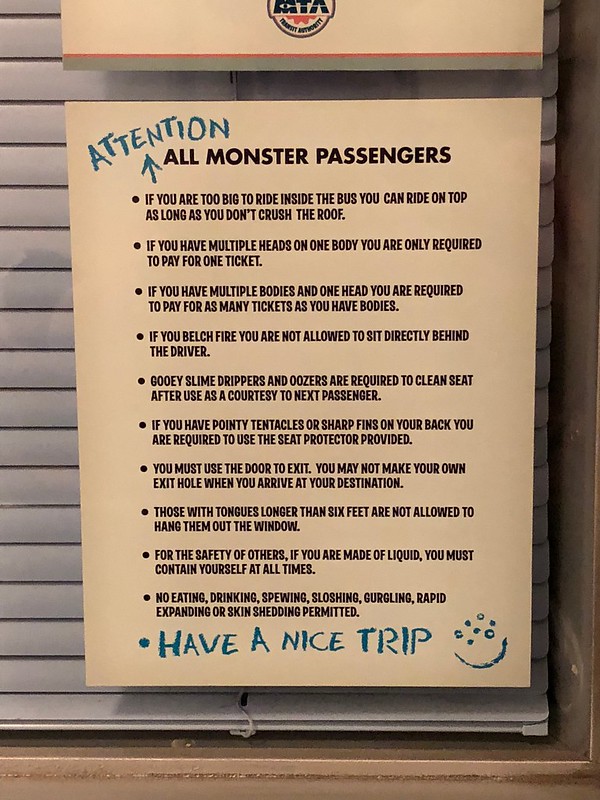 MTA
TRANSIT AUTHORITY
ATTENTION
ALL MONSTER PASSENGERS
• IF YOU ARE TOO BIG TO RIDE INSIDE THE BUS YOU CAN RIDE ON TOP
AS LONG AS YOU DON'T CRUSH THE ROOF.
• IF YOU HAVE MULTIPLE HEADS ON ONE BODY YOU ARE ONLY REQUIRED
TO PAY FOR ONE TICKET.
• IF YOU HAVE MULTIPLE BODIES AND ONE HEAD YOU ARE REQUIRED
TO PAY FOR AS MANY TICKETS AS YOU HAVE BODIES.
• IF YOU BELCH FIRE YOU ARE NOT ALLOWED TO SIT DIRECTLY BEHIND
THE DRIVER.
• GOOEY SLIME DRIPPERS AND OOZERS ARE REQUIRED TO CLEAN SEAT
AFTER USE AS A COURTESY TO NEXT PASSENGER.
• IF YOU HAVE POINTY TENTACLES OR SHARP FINS ON YOUR BACK YOU
ARE REQUIRED TO USE THE SEAT PROTECTOR PROVIDED.
• YOU MUST USE THE DOOR TO EXIT. YOU MAY NOT MAKE YOUR OWN
EXIT HOLE WHEN YOU ARRIVE AT YOUR DESTINATION.
• THOSE WITH TONGUES LONGER THAN SIX FEET ARE NOT ALLOWED TO
HANG THEM OUT THE WINDOW.
• FOR THE SAFETY OF OTHERS, IF YOU ARE MADE OF LIQUID, YOU MUST
CONTAIN YOURSELF AT ALL TIMES.
• NO EATING, DRINKING, SPEWING, SLOSHING, GURGLING, RAPID
EXPANDING OR SKIN SHEDDING PERMITTED.
• HAVE A NICE TRIP